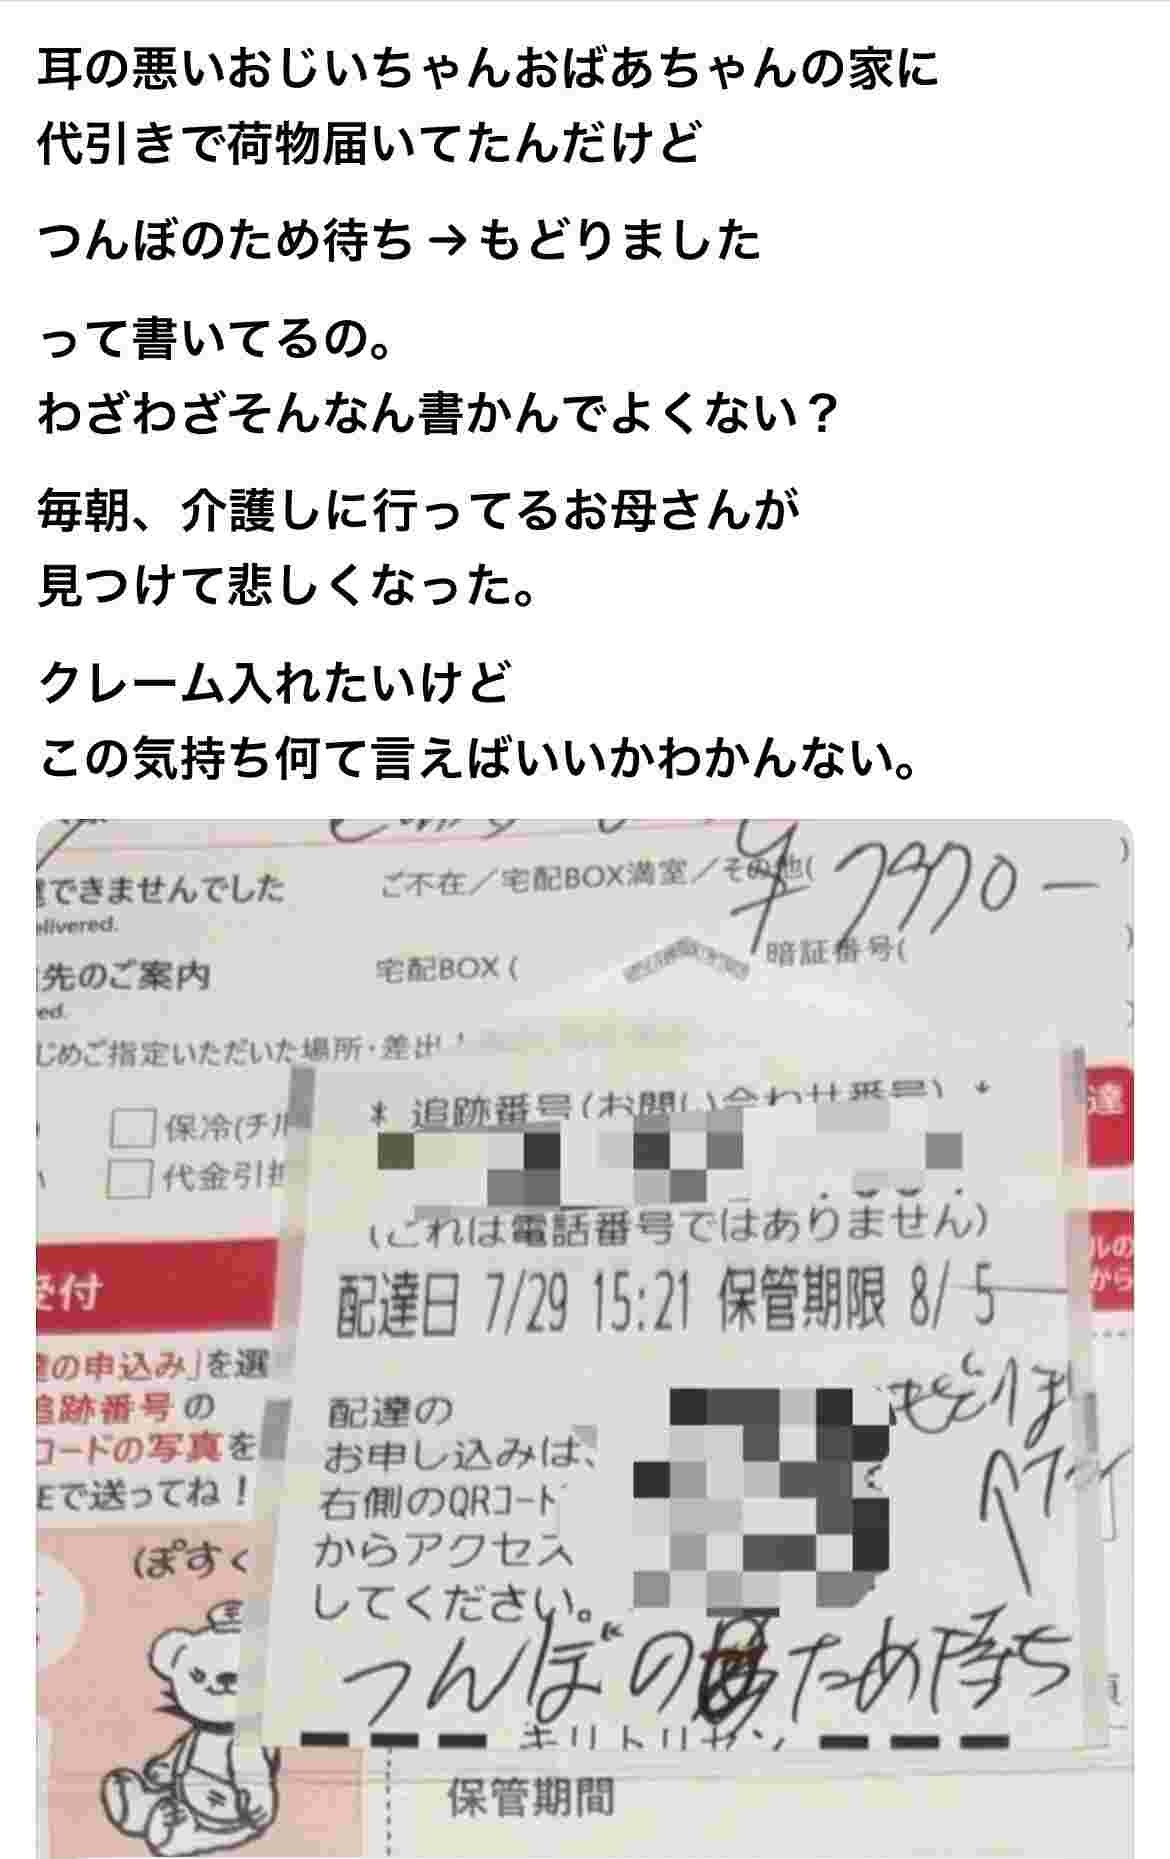 耳の悪いおじいちゃんおばあちゃんの家に
代引きで荷物届いてたんだけど
つんぼのため待ち→もどりました
って書いてるの。
わざわざそんなん書かんでよくない？
毎朝、介護しに行ってるお母さんが
見つけて悲しくなった。
クレーム入れたいけど
この気持ち何て言えばいいかわかんない。
できませんでした
elivered.
ご不在／宅配BOX満室／その他(
¥7970-
先のご案内
ed.
宅配BOX (
暗証番号(
じめご指定いただいた場所・差出
保冷(チル
代金引換
達
* 追跡番号(お問い合わせ番号) *
(これは電話番号ではありません)
受付
ルの
から
配達日 7/29 15:21 保管期限 8/ 5
の申込み」を選
追跡番号の
コードの写真を
で送ってね！
(ぽすく
配達の
お申し込みは、
右側のQRコード
からアクセス
してください。
つんぼのため待ち
キリトリセン
保管期間